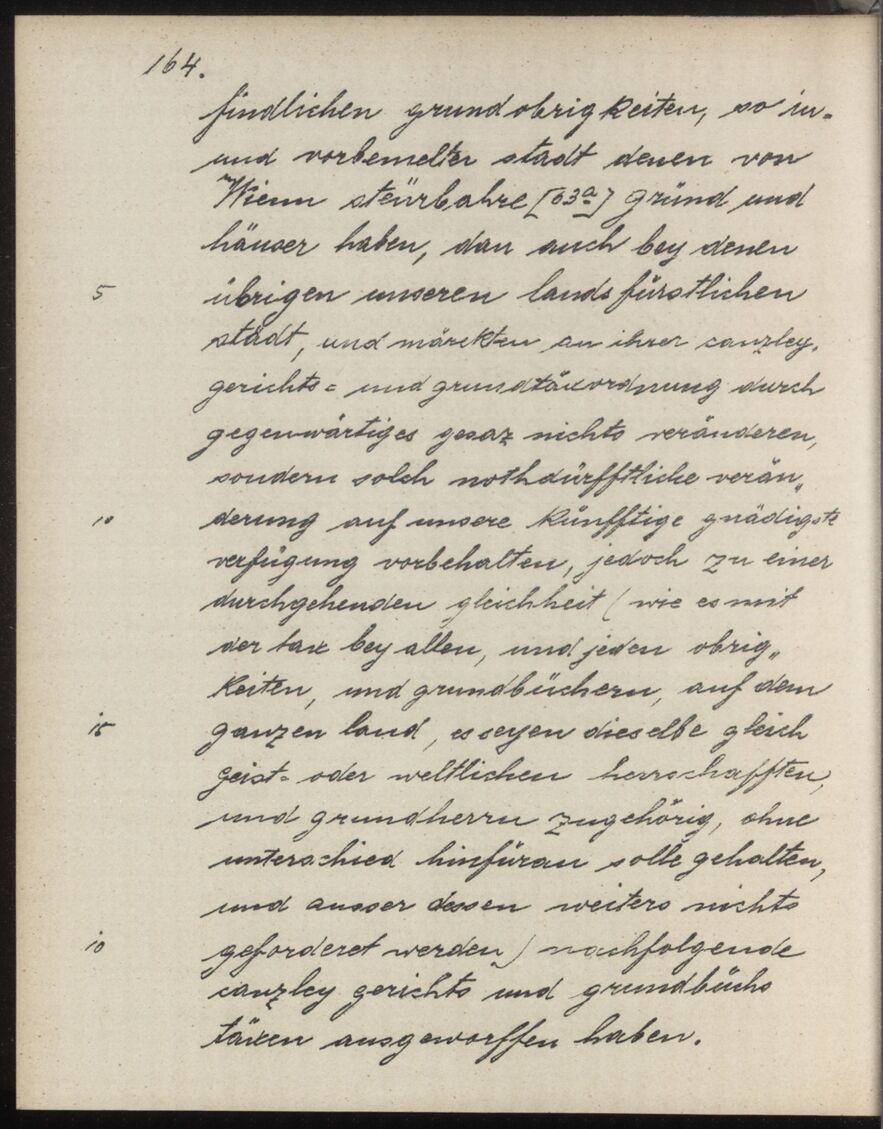 164.
findlichen grundobrigkeiten, so in-
und vorbemelter stadt denen von
Wienn steürbahre [63a] gründ und
häuser haben, dan auch bey denen
5 übrigen unseren landsfürstlichen
städt, und märckten an ihrer canzley,
gerichts= und grundtäxordnung durch
gegenwärtiges gesaz nichts veränderen,
sondern solch nothdürfftliche verän„
10 derung auf unsere künfftige gnädigste
verfügung vorbehalten, jedoch zu einer
durchgehenden gleichheit (wie es mit
der tax bey allen, und jeden obrig„
keiten, und grundbüchern, auf dem
15 ganzen land, es seyen dieselbe gleich
geist= oder weltlichen herrschafften,
und grundherrn zugehörig, ohne
unterschied hinfüran solle gehalten,
und ausser dessen weiters nichts
10 geforderet werden) nachfolgende
canzley gerichts und grundbüchs
täxen ausgeworffen haben.